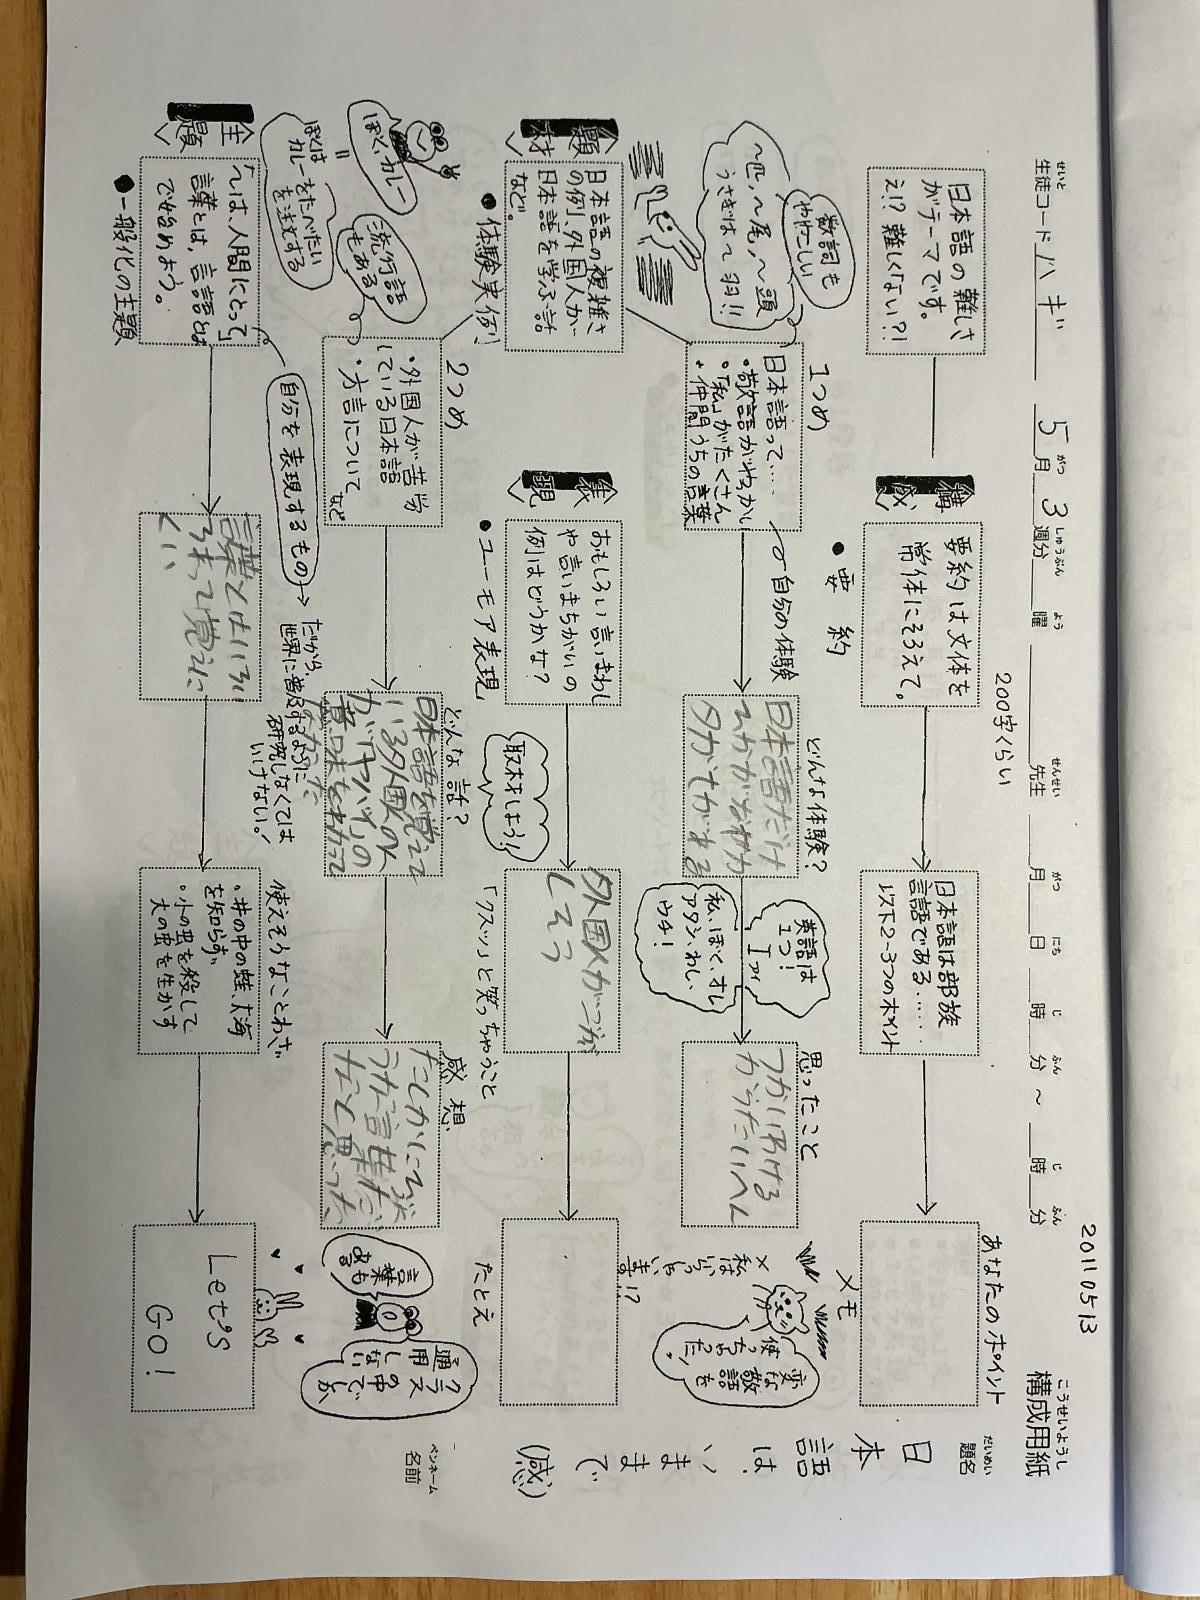 20110513
構成用紙
こうせいようし
生徒コード ハギ 5月3週分 曜 先生 月 日 時 分 〜 時 分
せいと がつ しゅうぶん よう せんせい がつ にち じ ふん じ ふん
題名
だいめい
日本語は、いままで
(感)
ペンネーム
名前
200字くらい
日本語の難しさ
がテーマです。
え!?難しくない?!
構成
要約は文体を
常体にそろえて。
●要約
日本語は部族
言語である……
以下2〜3つのポイント
あなたのポイント
メモ
数詞も
ややこしい
〜匹、〜尾、〜頭
うさぎは〜羽!!
1つめ
日本語って……
・敬語がむずかしい
・「私」がたくさん
+仲間うちの言葉
自分の体験
どんな体験?
日本語だけ
英語は
1つ!
I
アイ
私、ぼく、オレ
アタシ、わし、
ウチ!
思ったこと
つかいわける
変な敬語を
使っちゃった!
題材
日本語の複雑さ
の例、外国人が
日本語を学ぶ話
など。
●体験実例
表現
おもしろい言いまわし
や言いまちがいの
例はどうかな?
●ユーモア表現
取材しよう!
外国人が
しそう
「クスッ」と笑っちゃうこと
たとえ
ぼく、カレー
=
ぼくは
カレーをたべたい
を注文する
流行語
もある
2つめ
・外国人が苦労
している日本語
・方言について
など
どんな話?
日本語を覚えて
いる外国の人
が「ヤバイ」の
意味をわかって
感想
たしかに
なと思った
言葉
もある
クラス
の中でしか
通用
しない
主題
「〜は、人間にとって」
言葉とは、言語とは
で始めよう。
●一般化の主題
自分を表現するもの→
だから、
世界に普及するように
研究しなくては
いけない!
言葉とはいろい
ろあって覚えに
くい
使えそうなことわざ
・井の中の蛙、大海
を知らず、
・小の虫を殺して
大の虫を生かす
Let's
GO!